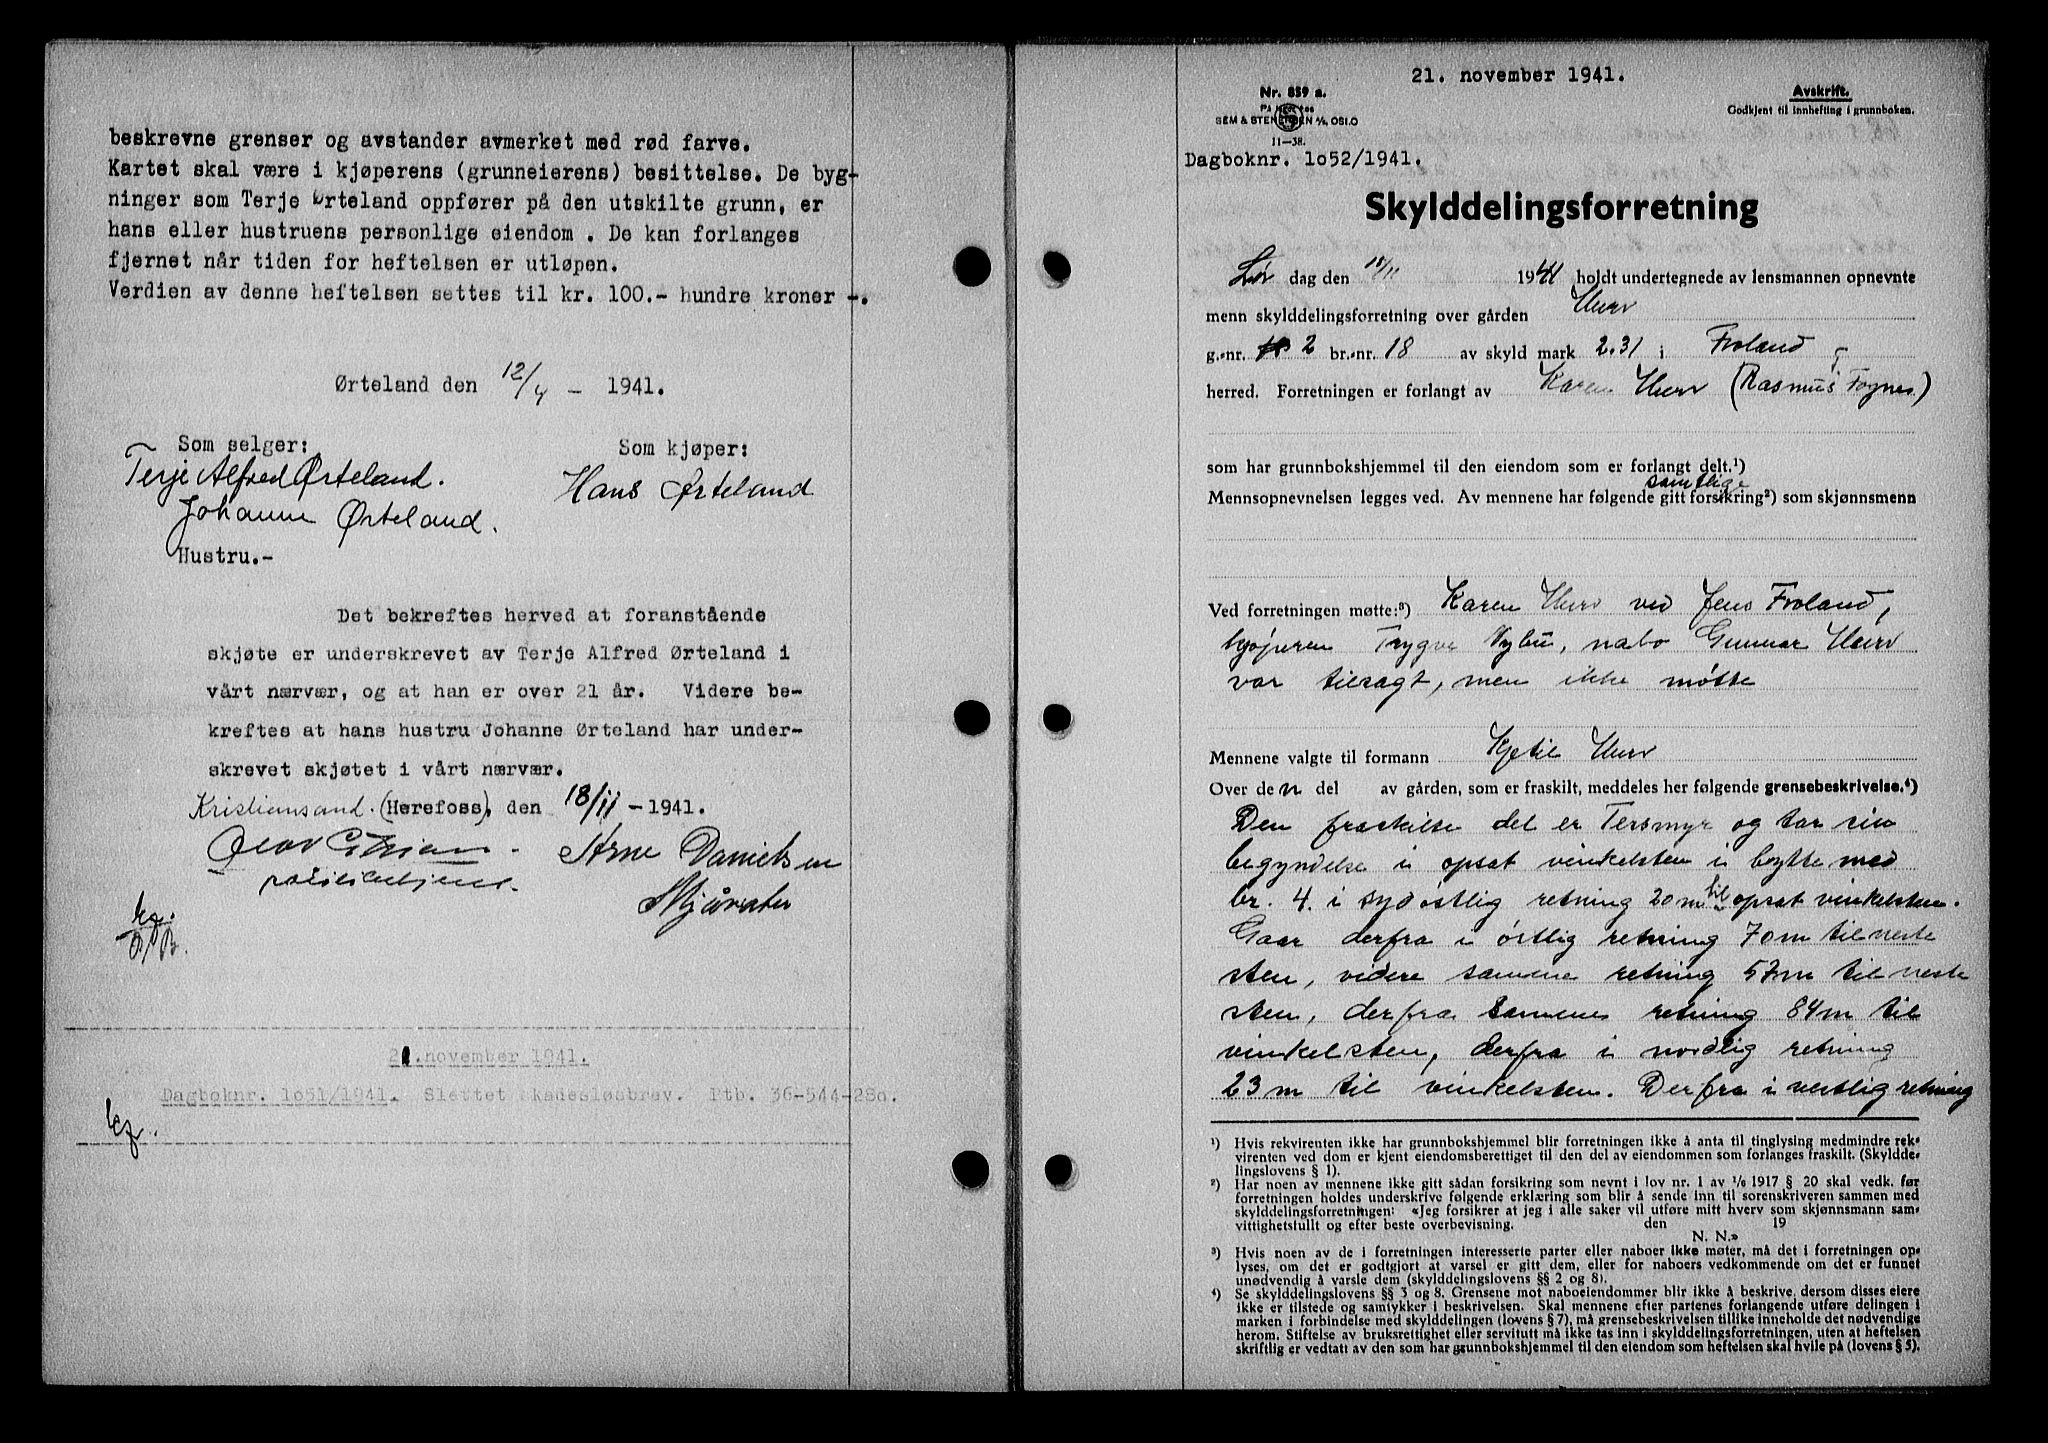 beskrevne grenser og avstander avmerket med rød farve.
Kartet skal være i kjøperens (grunneierens) besittelse. De byg-
ninger som Terje Ørteland oppfører på den utskilte grunn, er
hans eller hustruens personlige eiendom . De kan forlanges
fjernet når tiden for heftelsen er utløpen.
Verdien av denne heftelsen settes til kr. 100.- hundre kroner -.
Ørteland den 12/4 - 1941.
Som selger: Som kjøper:
Terje Alfred Ørteland. Hans Ørteland
Johanne Ørteland.
Hustru.-
Det bekreftes herved at foranstående
skjøte er underskrevet av Terje Alfred Ørteland i
vårt nærvær, og at han er over 21 år. Videre be-
kreftes at hans hustru Johanne Ørteland har under-
skrevet skjøtet i vårt nærvær.
Kristiansand. (Herefoss), den 18/11 - 1941.
Arne Danielsen
21.november 1941.
Dagboknr. 1o51/1941. Slettet skadesløsbrev. Ptb. 36-544-28o.
21. november 1941.
Nr. 859 a.
SEM & STENERSEN A/S, OSLO
11—38.
Avskrift.
Godkjent til innhefting i grunnboken.
Dagboknr. 1o52/1941.
Skylddelingsforretning
Lør dag den 1941 holdt undertegnede av lensmannen opnevnte
menn skylddelingsforretning over gården Hurv
g.-nr. 2 br.-nr. 18 av skyld mark 2.31 i Froland
herred. Forretningen er forlangt av Karen Hurv (Rasmus Fognes)
som har grunnbokshjemmel til den eiendom som er forlangt delt.¹)
samtlige
Mennsopnevnelsen legges ved. Av mennene har følgende gitt forsikring²) som skjønnsmenn
Ved forretningen møtte:³) Karen Hurv ved Jens Froland,
kjøperen Trygve Nybu, nabo Gunnar Hurv
var tilsagt, men ikke møtte
Mennene valgte til formann Kjetil Hurv
Over den del av gården, som er fraskilt, meddeles her følgende grensebeskrivelse.⁴)
Den fraskilte del er Tersmyr og tar sin
begyndelse i opsat vinkelsten i bytte med
br. 4. i sydøstlig retning 20 m til opsat vinkelsten.
Gaar derfra i østlig retning 70 m til neste
sten, videre samme retning 57 m til neste
sten, derfra samme retning 84 m til
vinkelsten, derfra i nordlig retning
23 m til vinkelsten. Derfra i vestlig retning
¹) Hvis rekvirenten ikke har grunnbokshjemmel blir forretningen ikke å anta til tinglysing medmindre rek-
virenten ved dom er kjent eiendomsberettiget til den del av eiendommen som forlanges fraskilt. (Skyldde-
lingslovens § 1).
²) Har noen av mennene ikke gitt sådan forsikring som nevnt i lov nr. 1 av 1/6 1917 § 20 skal vedk. før
forretningen holdes underskrive følgende erklæring som blir å sende inn til sorenskriveren sammen med
skylddelingsforretningen: «Jeg forsikrer at jeg i alle saker vil utføre mitt hverv som skjønnsmann sam-
vittighetsfullt og efter beste overbevisning. den 19
N. N.»
³) Hvis noen av de i forretningen interesserte parter eller naboer ikke møter, må det i forretningen op-
lyses, om det er godtgjort at varsel er gitt dem, eller for naboers vedkommende om det er funnet
unødvendig å varsle dem (skylddelingslovens §§ 2 og 8).
⁴) Se skylddelingslovens §§ 3 og 8. Grensene mot naboeiendommer blir ikke å beskrive, dersom disses eiere
ikke er tilstede og samtykker i beskrivelsen. Skal mennene efter partenes forlangende utføre delingen i
marken i forbindelse med skylddelingen (lovens § 7), må grensebeskrivelsen tillike inneholde det nødvendige
herom. Stiftelse av bruksrettighet eller servitutt må ikke tas inn i skylddelingsforretningen, uten at heftelsen
skriftlig er vedtatt av den som har grunnbokshjemmel til den eiendom som heftelsen skal hvile på (lovens § 5).